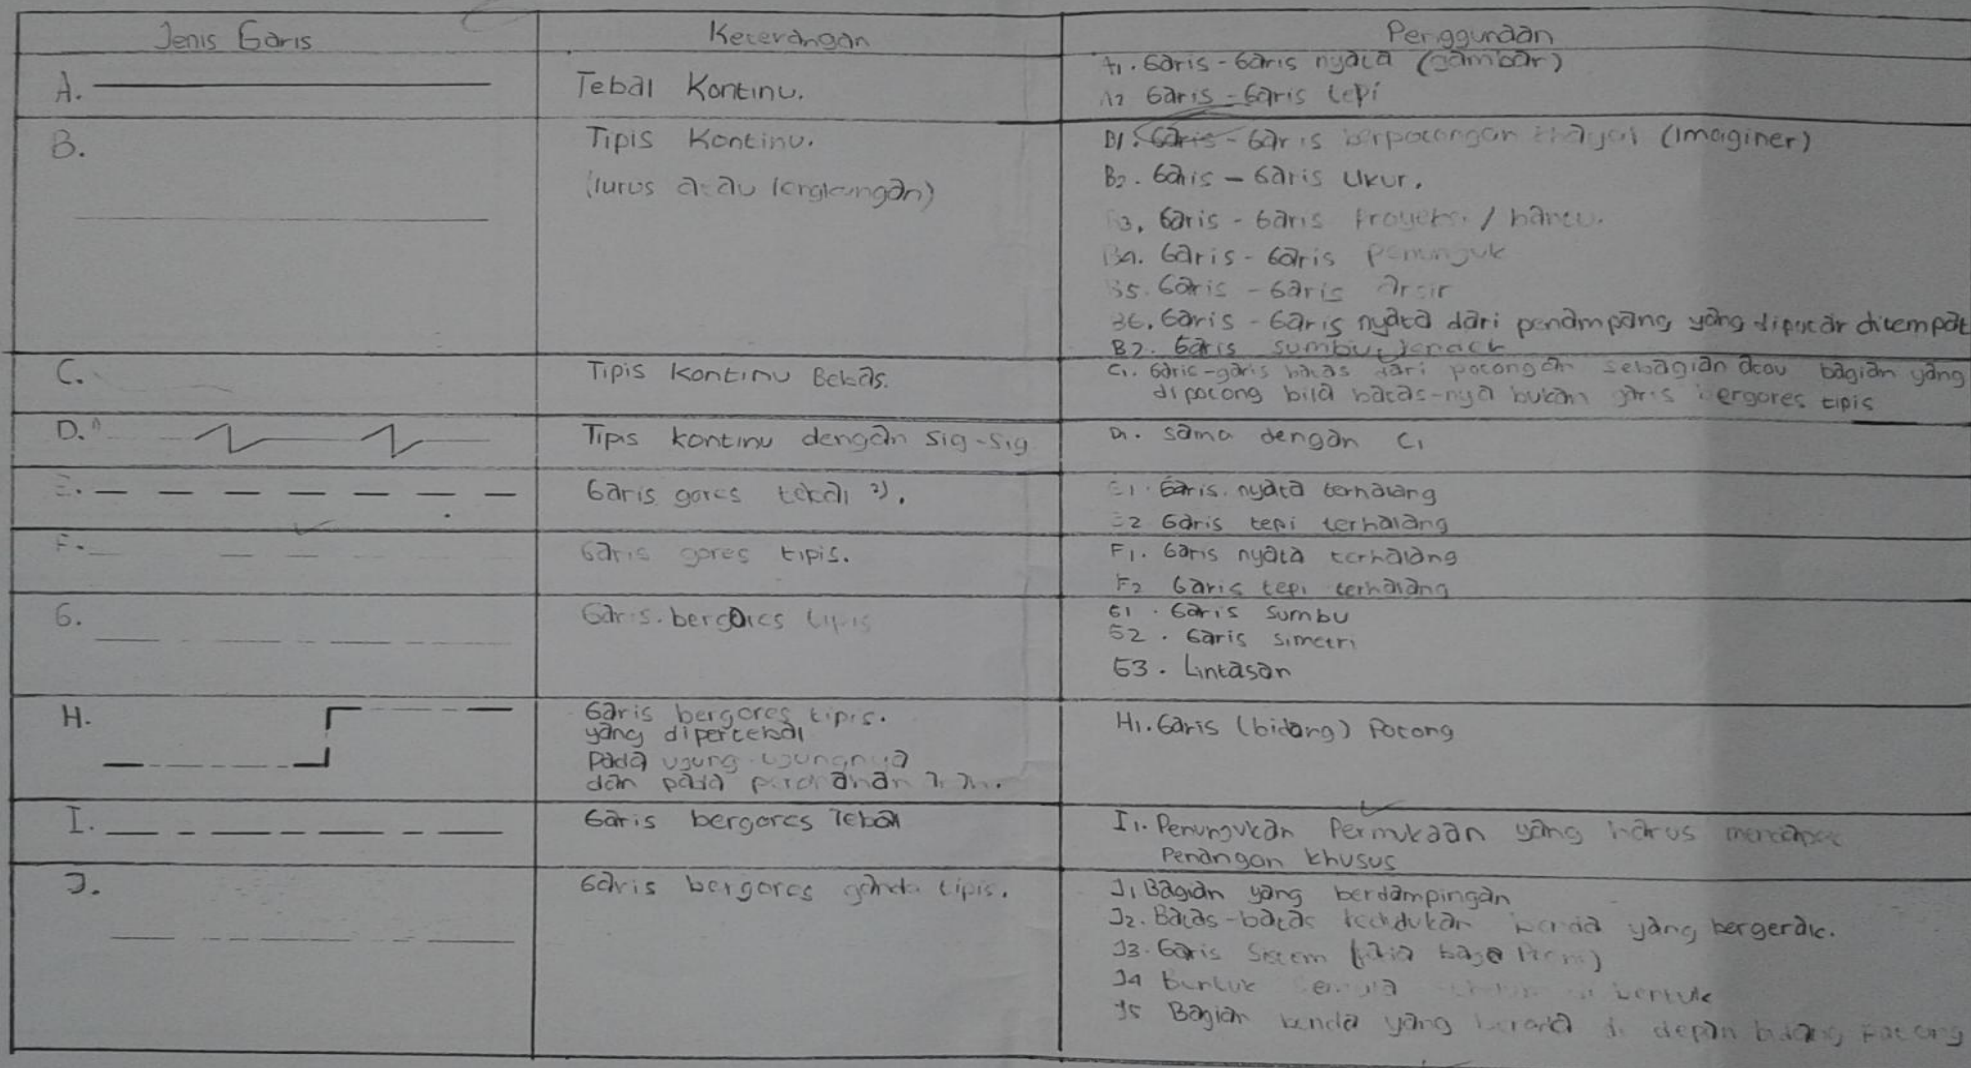 Jenis Garis
Keterangan
Penggunaan
A.
Tebal Kontinu.
A1. Garis-Garis nyata (gambar)
A2 Garis-Garis tepi
B.
Tipis Kontinu.
(lurus atau lengkungan)
B1. Garis-Garis berpotongan khayal (imaginer)
B2. Garis-Garis Ukur.
B3. Garis-Garis Proyeksi / bantu.
B4. Garis-Garis Penunjuk
B5. Garis-Garis Arsir
B6. Garis-Garis nyata dari penampang yang diputar ditempat
B7. Garis sumbu pendek
C.
Tipis Kontinu Bebas.
C1. Garis-garis batas dari potongan sebagian atau bagian yang
dipotong bila batas-nya bukan garis bergores tipis
D.
Tipis kontinu dengan sig-sig
D1. sama dengan C1
E.
Garis gores tebal 2).
E1. Garis nyata terhalang
E2 Garis tepi terhalang
F.
Garis gores tipis.
F1. Garis nyata terhalang
F2 Garis tepi terhalang
G.
Garis bergores tipis
G1. Garis Sumbu
G2. Garis simetri
G3. Lintasan
H.
Garis bergores tipis.
yang dipertebal
Pada ujung-ujungnya
dan pada perubahan
H1. Garis (bidang) Potong
I.
Garis bergores Tebal
I1. Penunjukan Permukaan yang harus mendapat
Penangan khusus
J.
Garis bergores ganda tipis.
J1 Bagian yang berdampingan
J2. Batas-batas kedudukan benda yang bergerak.
J3. Garis Sistem
J4 Bentuk semula bentuk
J5 Bagian benda yang berada di depan bidang Potong